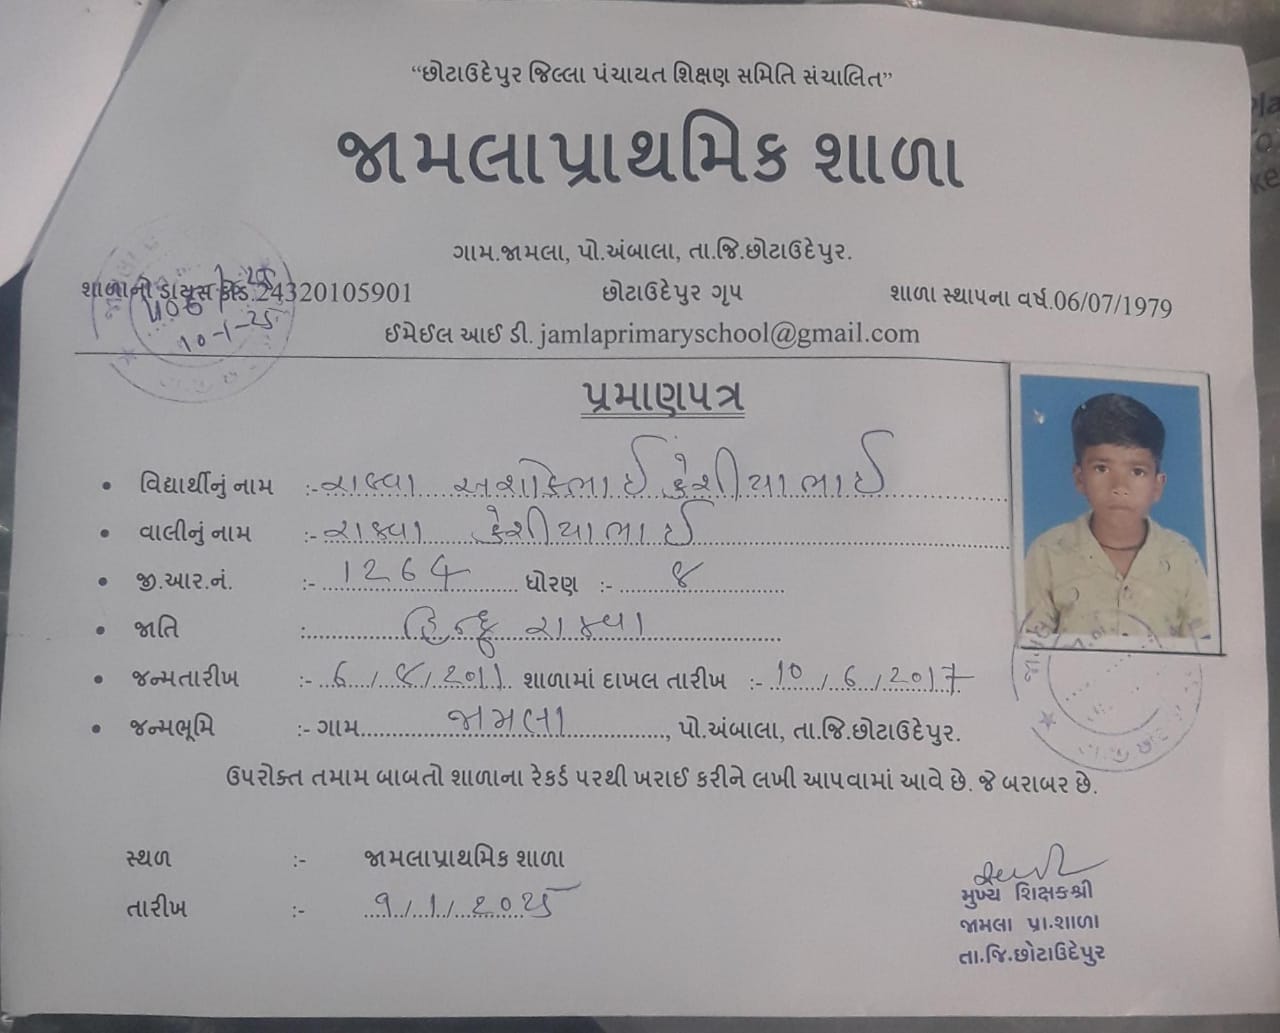 “છોટાઉદેપુર જિલ્લા પંચાયત શિક્ષણ સમિતિ સંચાલિત”
જામલાપ્રાથમિક શાળા
ગામ.જામલા, પો.અંબાલા, તા.જિ.છોટાઉદેપુર.
શાળાનો ડાયસ કોડ.24320105901 છોટાઉદેપુર ગૃપ શાળા સ્થાપના વર્ષ.06/07/1979
૧૦-૧-૨૫
ઈમેઈલ આઈ ડી. jamlaprimaryschool@gmail.com
પ્રમાણપત્ર
• વિદ્યાર્થીનું નામ :- રાઠવા અશોકભાઈ
• વાલીનું નામ :- રાઠવા
• જી.આર.નં. :- 1264 ધોરણ :- ૪
• જાતિ : હિન્દુ રાઠવા
• જન્મતારીખ :- 6/ /2011 શાળામાં દાખલ તારીખ :- 10/6/2017
• જન્મભૂમિ :- ગામ જામલા, પો.અંબાલા, તા.જિ.છોટાઉદેપુર.
ઉપરોક્ત તમામ બાબતો શાળાના રેકર્ડ પરથી ખરાઈ કરીને લખી આપવામાં આવે છે. જે બરાબર છે.
સ્થળ :- જામલાપ્રાથમિક શાળા
તારીખ :- ૧/1/૨૦૨૫
મુખ્ય શિક્ષકશ્રી
જામલા પ્રા.શાળા
તા.જિ.છોટાઉદેપુર